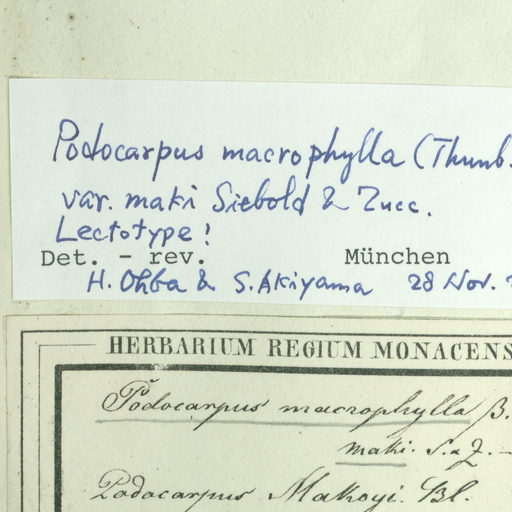 Podocarpus macrophylla (Thunb.
var. maki Siebold & Zucc.
Lectotype!
Det. - rev. München
H. Ohba & S. Akiyama 28 Nov.
HERBARIUM REGIUM MONACENS
Podocarpus macrophylla β.
maki. S. & Z. —
Podocarpus Makoyi. Bl.